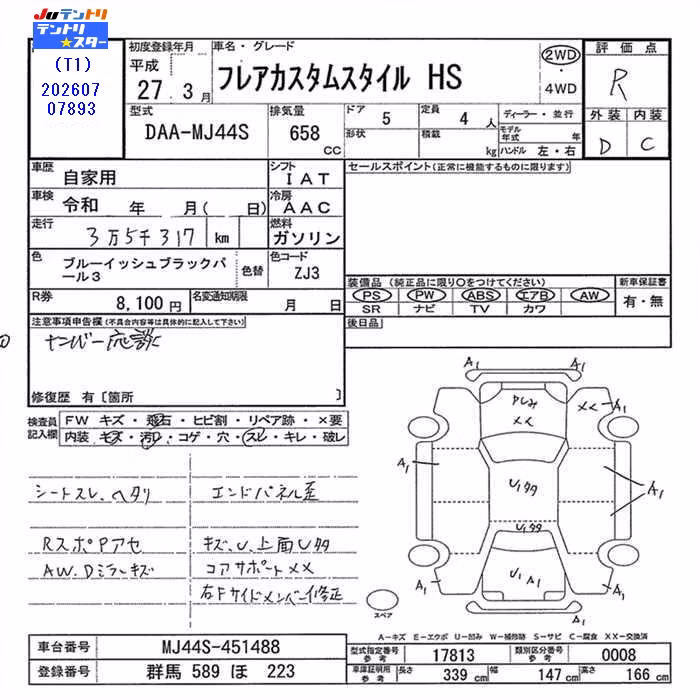 JUテントリ
テントリ★スター
(T1)
202607
07893
初度登録年月
平成
27 . 3月
車名・グレード
フレアカスタムスタイル HS
2WD
・
4WD
評価点
R
外装 内装
D C
型式
DAA-MJ44S
排気量
658
CC
ドア 5
形状
定員 4 人
積載 kg
ディーラー・並行
モデル年式 年
ハンドル 左・右
車歴 自家用
シフト IAT
車検 令和 年 月( 日)
冷房 AAC
走行 3万5千317 km
燃料 ガソリン
色 ブルーイッシュブラックパール3
色替
色コード ZJ3
R券 8,100円
名変通知期限 月 日
セールスポイント(正常に機能するものに限ります)
装備品 (純正品に限り○をつけてください)
PS PW ABS エアB AW
SR ナビ TV カワ
新車保証書
有・無
後日品
注意事項申告欄(不具合内容等は具体的に記入して下さい)
修復歴 有〔箇所 〕
検査員記入欄
FW キズ・飛石・ヒビ割・リペア跡・×要
内装 キズ・汚レ・コゲ・穴・スレ・キレ・破レ
シートスレ、ヘタリ
エンドパネル歪
RスポPアセ
キズ、U、上面Uタタ
AW、Dミラーキズ
コアサポート××
右Fサイドメンバー修正
A1 A1
アレみ
××
××
A1
A1
U1タタ
A1
U1タタ
A1
U1 A1
A1
A1 A1
スペア
A-キズ E-エクボ U-凹み W-補修跡 S-サビ C-腐食 XX-交換済
車台番号 MJ44S-451488
登録番号 群馬 589 ほ 223
型式指定番号 参考 17813
類別区分番号 参考 0008
車庫証明用 参考 長さ 339 cm 幅 147 cm 高さ 166 cm